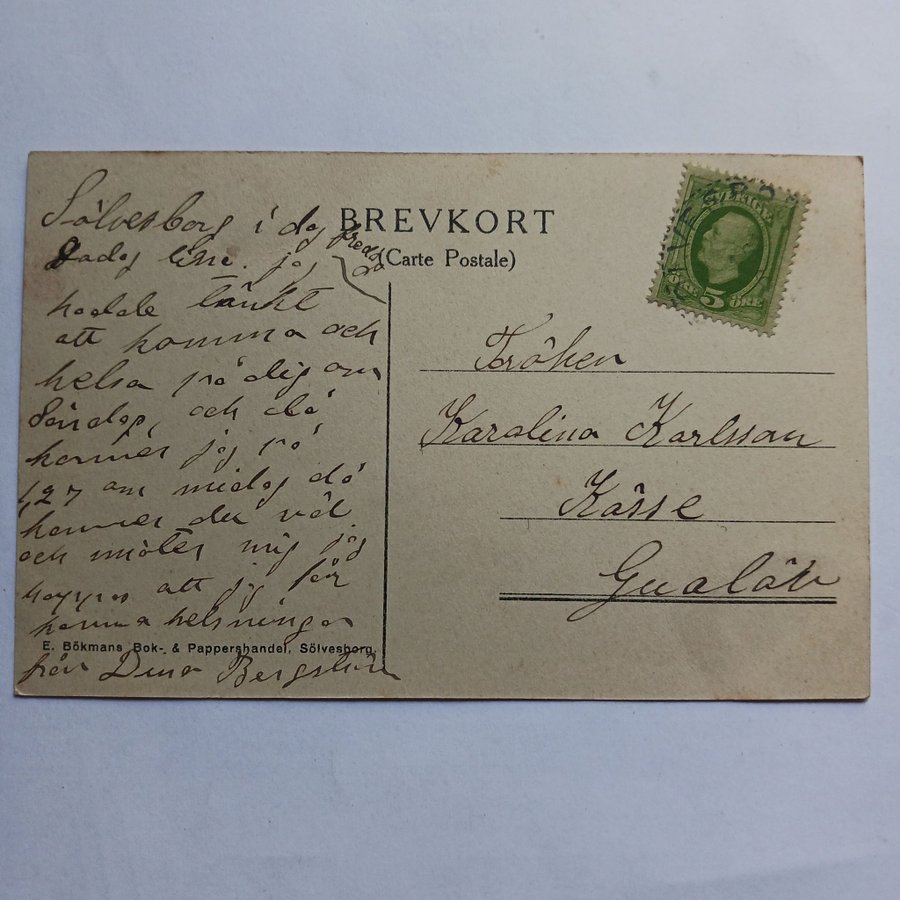 BREVKORT
(Carte Postale)
SVERIGE
5 ÖRE
Sölvesborg i dag fredag
Godag lilla. jag
hadde tänkt
att komma och
helsa på dig om
Söndag, och då
kommer jag på
1,27 om midag då
kommer du väl
och möter mig jag
hoppas att jag får
komma helsningar
från Dina Bergström
E. Bökmans Bok- & Pappershandel, Sölvesborg.
Fröken
Karolina Karlsson
Gualöv